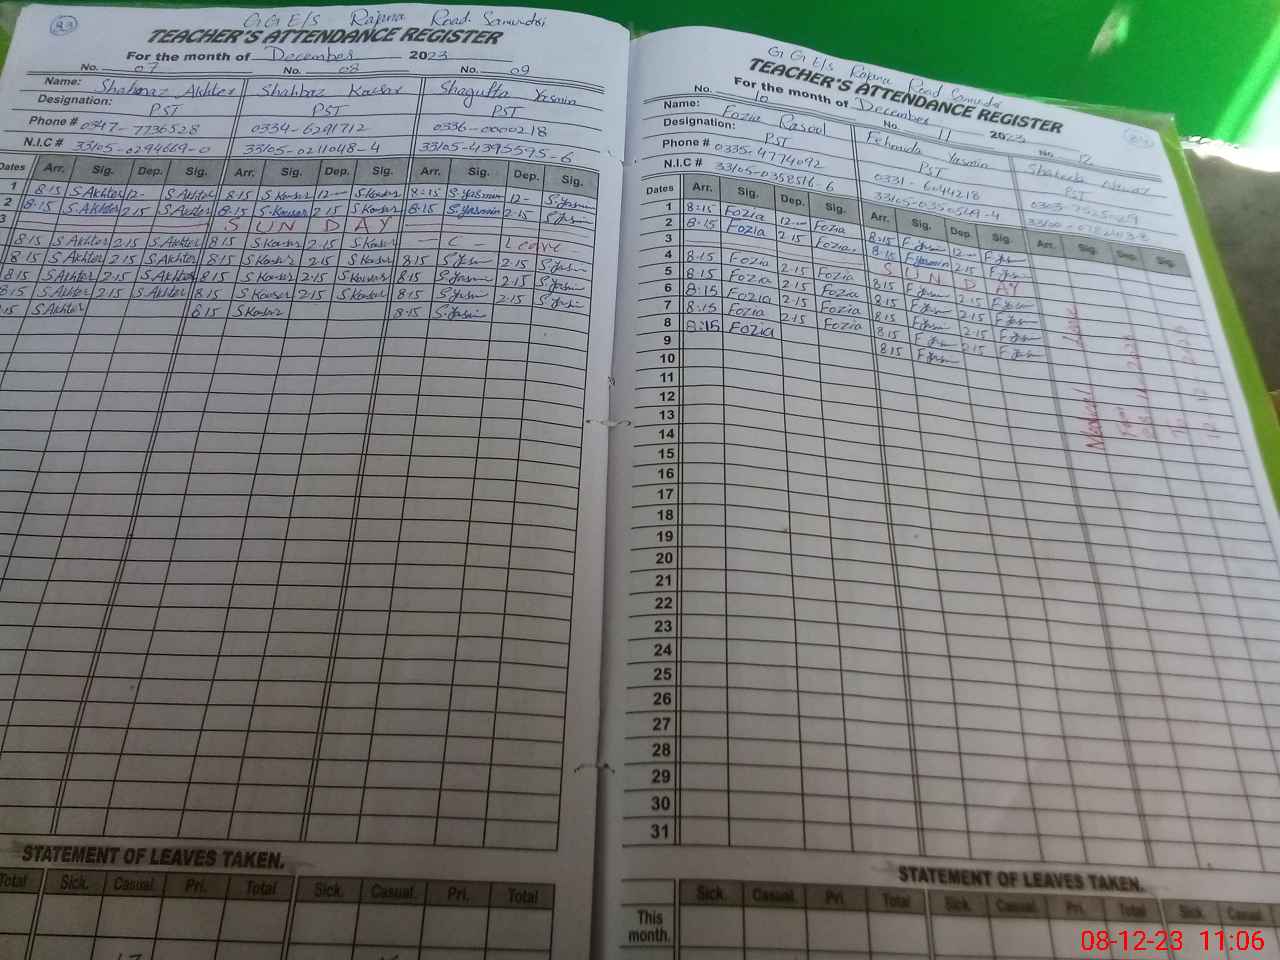 83
G G E/S Rajana Road Samundri
TEACHER'S ATTENDANCE REGISTER
For the month of December 2023
No. 07 No. 08 No. 09
Name: Shahnaz Akhter Shahbaz Kousar Shagufta Yasmin
Designation: PST PST PST
Phone # 0347-7736528 0334-6291712 0336-0000218
N.I.C # 33105-0294669-0 33105-0211048-4 33105-4395595-6
Dates Arr. Sig. Dep. Sig. Arr. Sig. Dep. Sig. Arr. Sig. Dep. Sig.
1 8:15 S.Akhter 12- S.Akhter 8:15 S.Kousar 12- S.Kousar 8:15 S.Yasmin 12- S.Yasmin
2 8:15 S.Akhter 2:15 S.Akhter 8:15 S.Kousar 2:15 S.Kousar 8:15 S.Yasmin 2:15 S.Yasmin
3 S U N D A Y
8:15 S.Akhter 2:15 S.Akhter 8:15 S.Kousar 2:15 S.Kousar C - Leave
8:15 S.Akhter 2:15 S.Akhter 8:15 S.Kousar 2:15 S.Kousar 8:15 S.Yasmin 2:15 S.Yasmin
8:15 S.Akhter 2:15 S.Akhter 8:15 S.Kousar 2:15 S.Kousar 8:15 S.Yasmin 2:15 S.Yasmin
8:15 S.Akhter 2:15 S.Akhter 8:15 S.Kousar 2:15 S.Kousar 8:15 S.Yasmin 2:15 S.Yasmin
:15 S.Akhter 8:15 S.Kousar 8:15 S.Yasmin
STATEMENT OF LEAVES TAKEN.
Total Sick. Casual. Pri. Total Sick. Casual. Pri. Total
G G E/S Rajana Road Samundri
TEACHER'S ATTENDANCE REGISTER
For the month of December 2023
No. 10 No. 11 No. 12
Name: Fozia Rasool Fehmida Yasmin Shaheda Nawaz
Designation: PST PST PST
Phone # 0335-4774092 0331-6044218
N.I.C # 33105-0358516-6
Dates Arr. Sig. Dep. Sig. Arr. Sig. Dep. Sig. Arr. Sig. Dep. Sig.
1 8:15 Fozia 12- Fozia 8:15 F.Yasmin 12- F.Yasmin
2 8:15 Fozia 2:15 Fozia 8:15 F.Yasmin 2:15 F.Yasmin
3 S U N D A Y
4 8:15 Fozia 2:15 Fozia 8:15 F.Yasmin 2:15 F.Yasmin
5 8:15 Fozia 2:15 Fozia 8:15 F.Yasmin 2:15 F.Yasmin
6 8:15 Fozia 2:15 Fozia 8:15 F.Yasmin 2:15 F.Yasmin
7 8:15 Fozia 2:15 Fozia 8:15 F.Yasmin 2:15 F.Yasmin
8 8:15 Fozia
9
10
11
12
13
14
15
16
17
18
19
20
21
22
23
24
25
26
27
28
29
30
31
Medical Leave
STATEMENT OF LEAVES TAKEN.
Sick. Casual. Pri. Total Sick. Casual. Pri. Total Sick. Casual.
This
month.
08-12-23 11:06